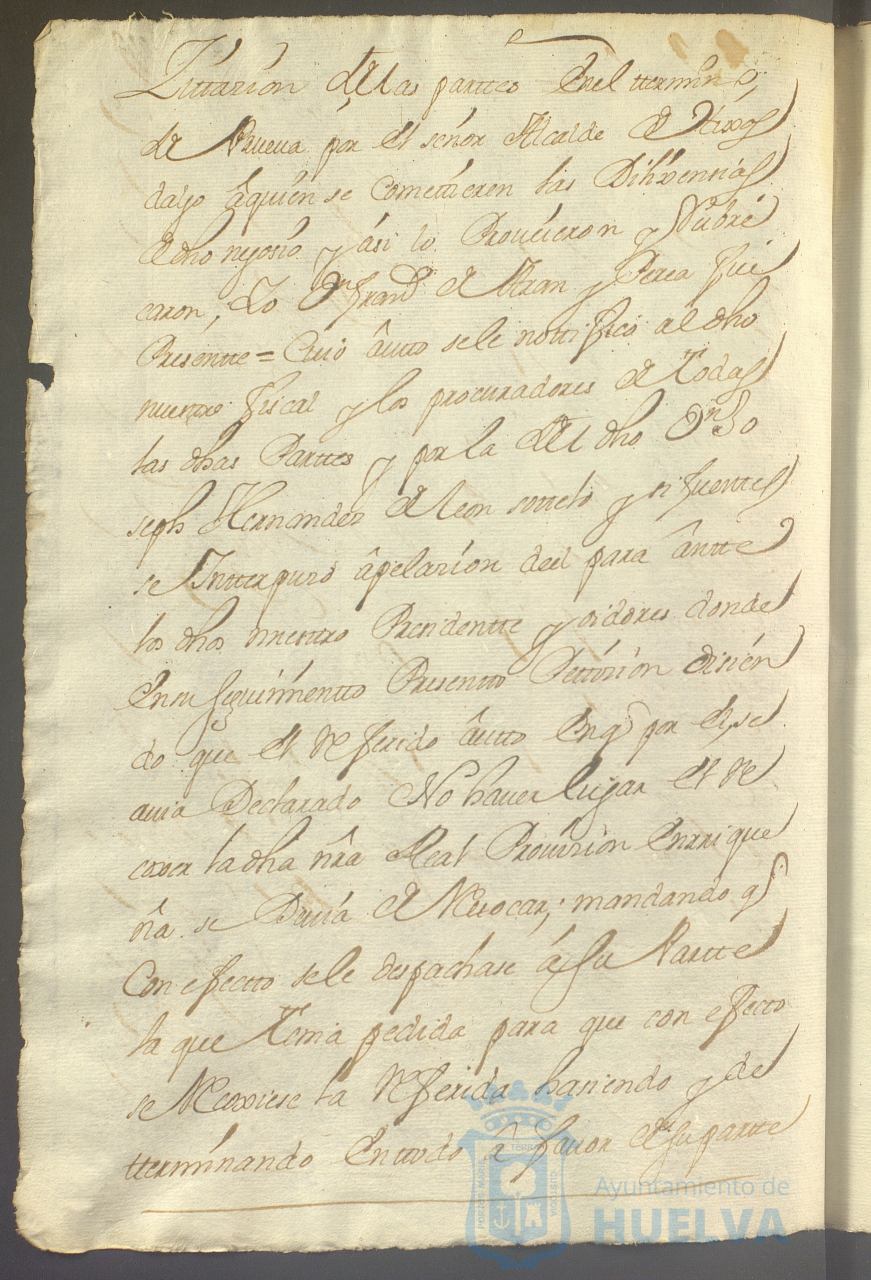 Zittazion de las parttes en el ttermino
de Prueva por el señor Alcalde de Hixos
dalgo âquien se Comettieren las Dilixensias
de dho negosio y âsi lo Proueieron y Rubri
caron, Yo Dn franco de Perea fui
Presentte = Cuio âutto se le nottifico al dho
nuestro fiscal y los procuradores de Todas
las dhas Parttes y por la del dho Dn Jo
seph Hernandez de leon sottelo y sifuenttes
se Intterpuso âpelazion deel para ântte
los dhos nuestro Presidentte y oidores donde
en su seguimientto Presentto Pettizion disien
do que el Referido âutto en qe por el, se
auia Declarado No hauer lugar el Re
coxer la dha nra Real Prouision
se Deuia de Reuocar; mandando qe
Con efectto se le despachase â su Partte
la que Tenia pedida para que con efecto
se Recoxiese la Referida hasiendo y de
tterminando en ttodo â fauor de su partte
Ayuntamiento de
HUELVA